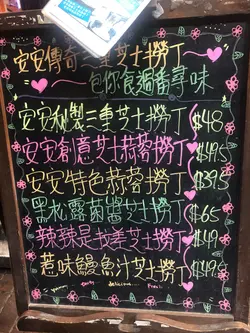 安安傳奇三重芝士撈丁
包你食過番尋味
安安秘製三重芝士撈丁 $48
安安創意芝士蒜蓉撈丁 $49.5
安安特色蒜蓉撈丁 $39.5
黑松露菌醬芝士撈丁 $65
辣辣是找差芝士撈丁 $49.5
惹味鰻魚汁芝士撈丁 $49.5
yummy tasty delicious Fresh